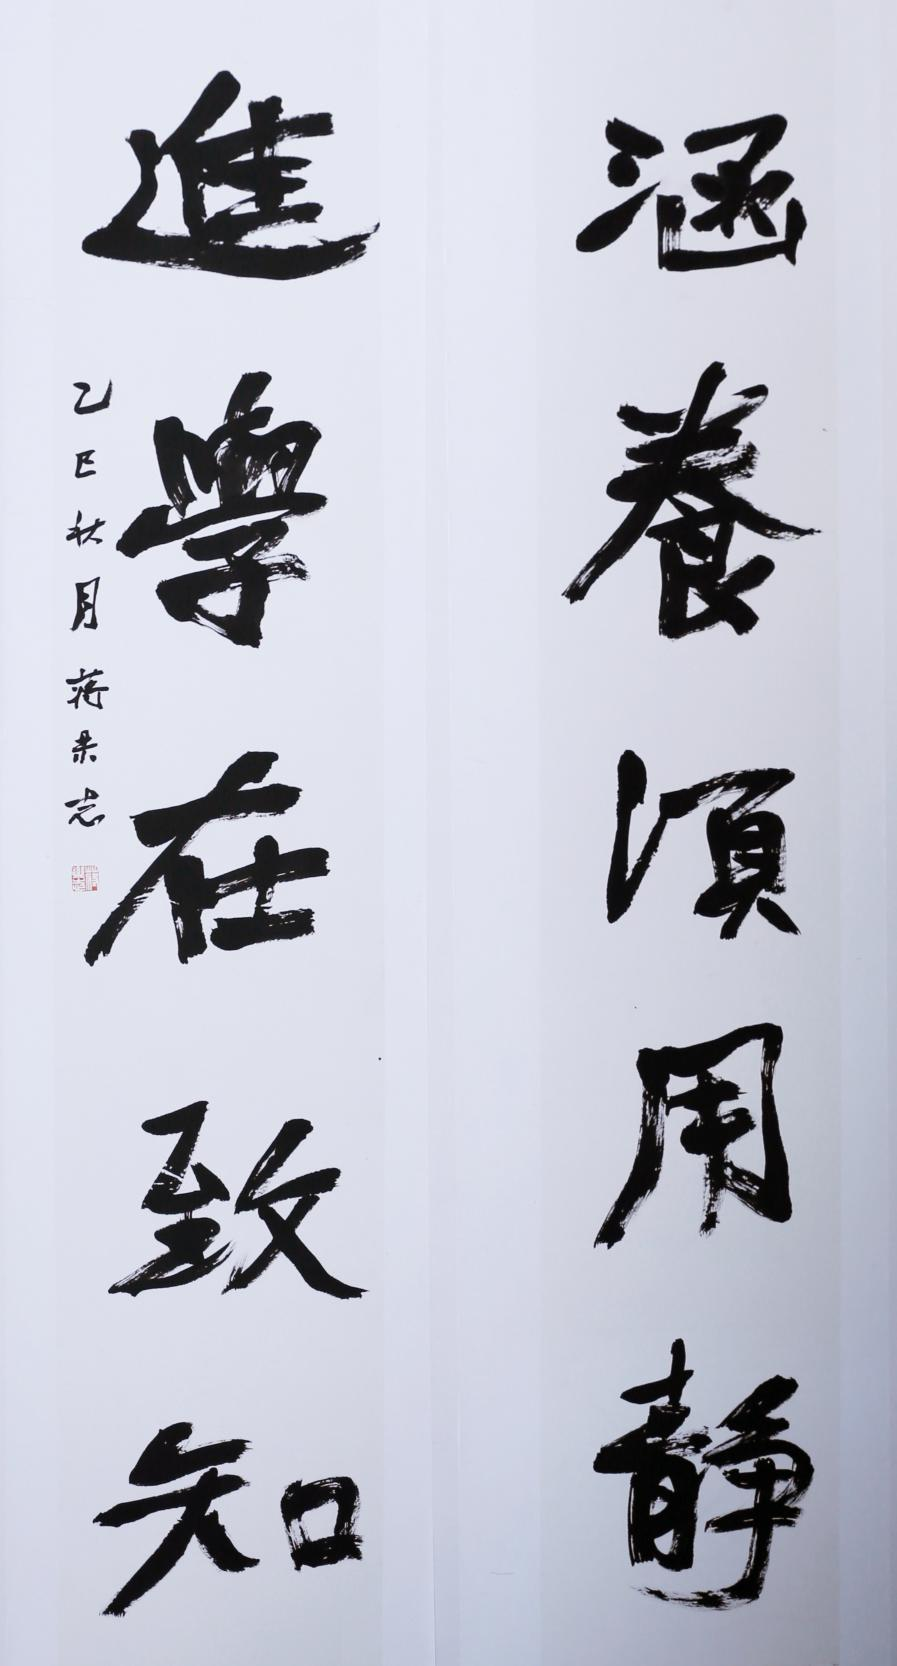 涵養須用靜
進學在致知
乙巳秋月蔣杲志